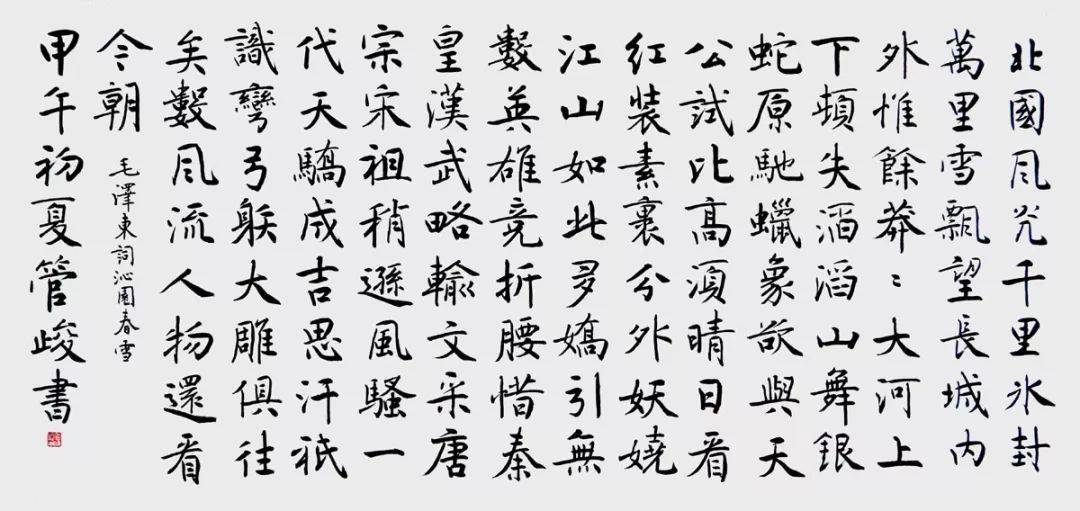 北國風光千里氷封
萬里雪飄望長城内
外惟餘莽〻大河上
下頓失滔滔山舞銀
蛇原馳蠟象欲與天
公試比高湏晴日看
紅裝素裹分外妖嬈
江山如此多嬌引無
數英雄竞折腰惜秦
皇漢武略輸文采唐
宗宋祖稍遜風騷一
代天驕成吉思汗祇
識彎弓䠶大雕俱往
矣數風流人物還看
今朝
毛澤東詞沁園春雪
甲午初夏管峻書